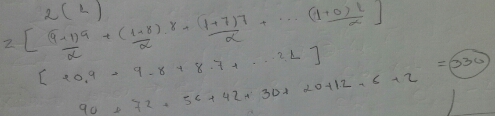 2(1)
2[(9+1)9/2 + (1+8).8/2 + (1+7)7/2 + ... (1+0)1/2]
[10.9 + 9.8 + 8.7 + ...2.1]
90 + 72 + 56 + 42 + 30 + 20 + 12 + 6 + 2 = 330